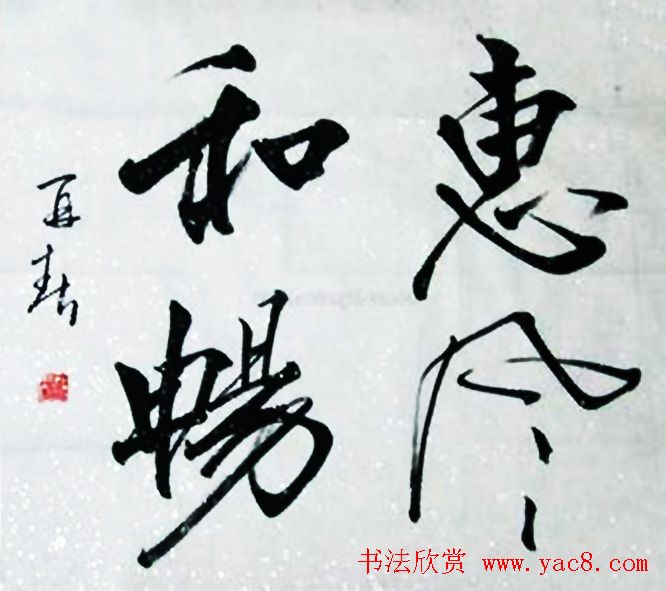 惠風
和暢
书法欣赏 www.yac8.com